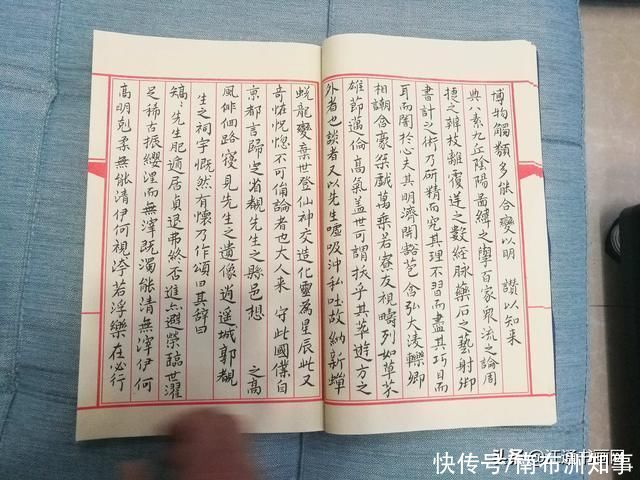 博物觸類多能合變以明 讚以知来
典八素九丘陰陽圖緯之學百家衆流之論周
捷之辨枝離覆逆之数經脉藥石之藝射御
書計之術乃研精而究其理不習而盡其巧目而
耳而闇於心夫其明濟開豁苞含弘大淩轢卿
相謿含豪桀戲萬乗若寮友視疇列如草芥
雄節邁倫高氣盖世可謂抜乎其萃遊方之
外者也談者又以先生嘘吸沖私吐故納新蟬
蛻龍變棄世登仙神交造化靈為星辰此又
奇恠怳惚不可俻論者也大人来 守此國僕自
京都言歸 定省覩先生之縣邑想 之高
風俳佪路寢見先生之遺像逍遥城郭覩
生之祠宇慨然有懷乃作頌曰其辞曰
矯〻先生肥遁居貞退弗終否進亦避榮臨世濯
足稀古振纓涅而無滓既濁能清無滓伊何
高明剋柔無能清伊何視洿若浮樂在必行
快传号/南布洲知事